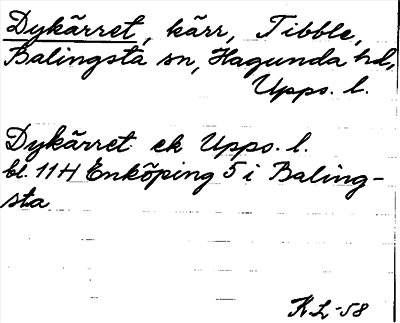 Dykärret, kärr, Tibble,
Balingsta sn, Hagunda hd,
Upps. l.
Dykärret ek Upps. l.
bl. 11H Enköping 5 i Baling-
sta
K L -58